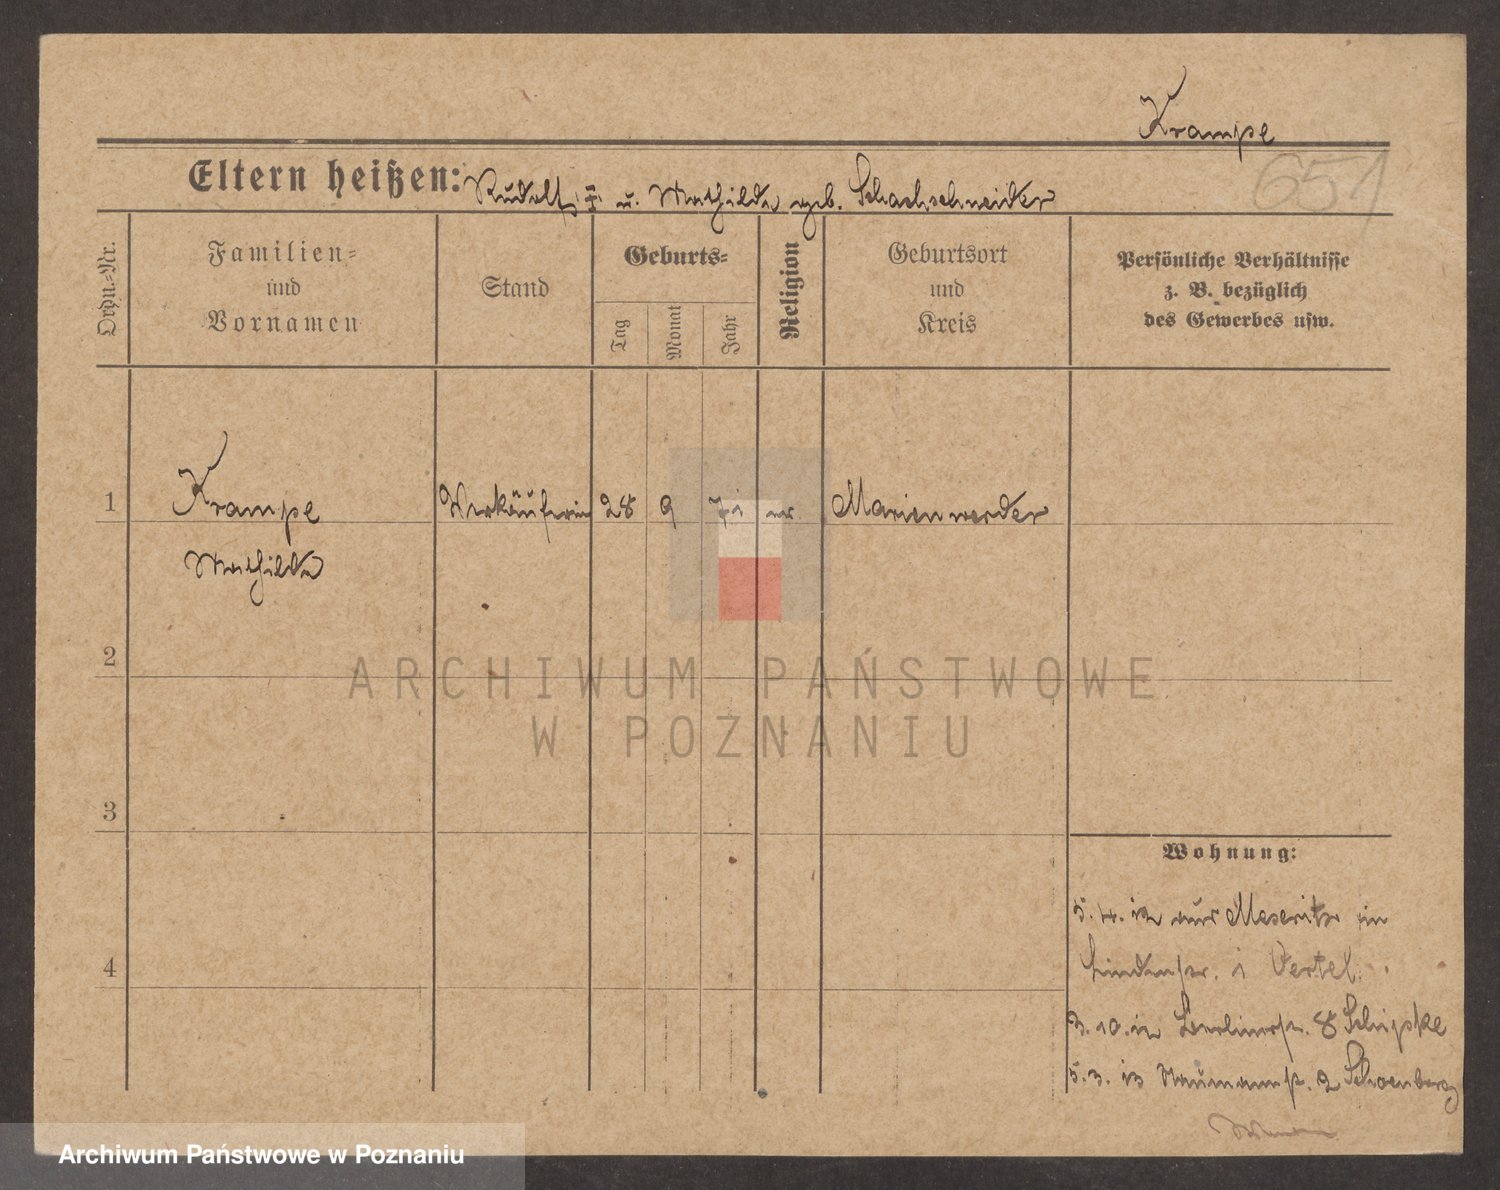 Krampe
651
Eltern heißen: Rudolf u. Mathilde geb. Schachschneider
Ordn.-Nr.
Familien-
und
Vornamen
Stand
Geburts-
Tag
Monat
Jahr
Religion
Geburtsort
und
Kreis
Persönliche Verhältnisse
z. B. bezüglich
des Gewerbes usw.
1 Krampe Verkäuferin 28 9 ev Marienwerder
Mathilde
2
ARCHIWUM PAŃSTWOWE
W POZNANIU
3
Wohnung:
5.4.12 aus Meseritz in
4
Lindenstr. 1 Oertel.
3.10.12 Berlinerstr. 8 Schipske
5.3.13 Naumannstr. 2 Schoenberg
Archiwum Państwowe w Poznaniu